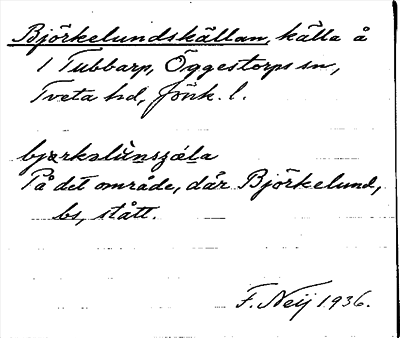 Björkelundskällan, källa å
1 Tubbarp, Öggestorps sn,
Tveta hd, Jönk. l.
bjærkəlùnsçæ̀la
På det område, där Björkelund,
bs, stått.
F. Neij 1936.